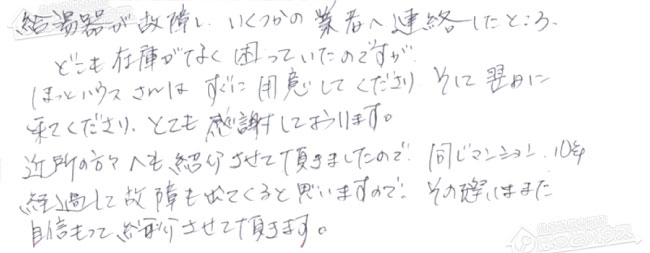 給湯器が故障し、いくつかの業者へ連絡したところ、
どこも在庫がなく困っていたのですが
ほっとハウスさんは すぐに用意してくださり そして翌日に
来てくださり、とても感謝しております。
近所の方々へも紹介させて頂きましたので、同じマンション、10年
経過して故障も出てくると思いますので、その際はまた
自信もって紹介させて頂きます。